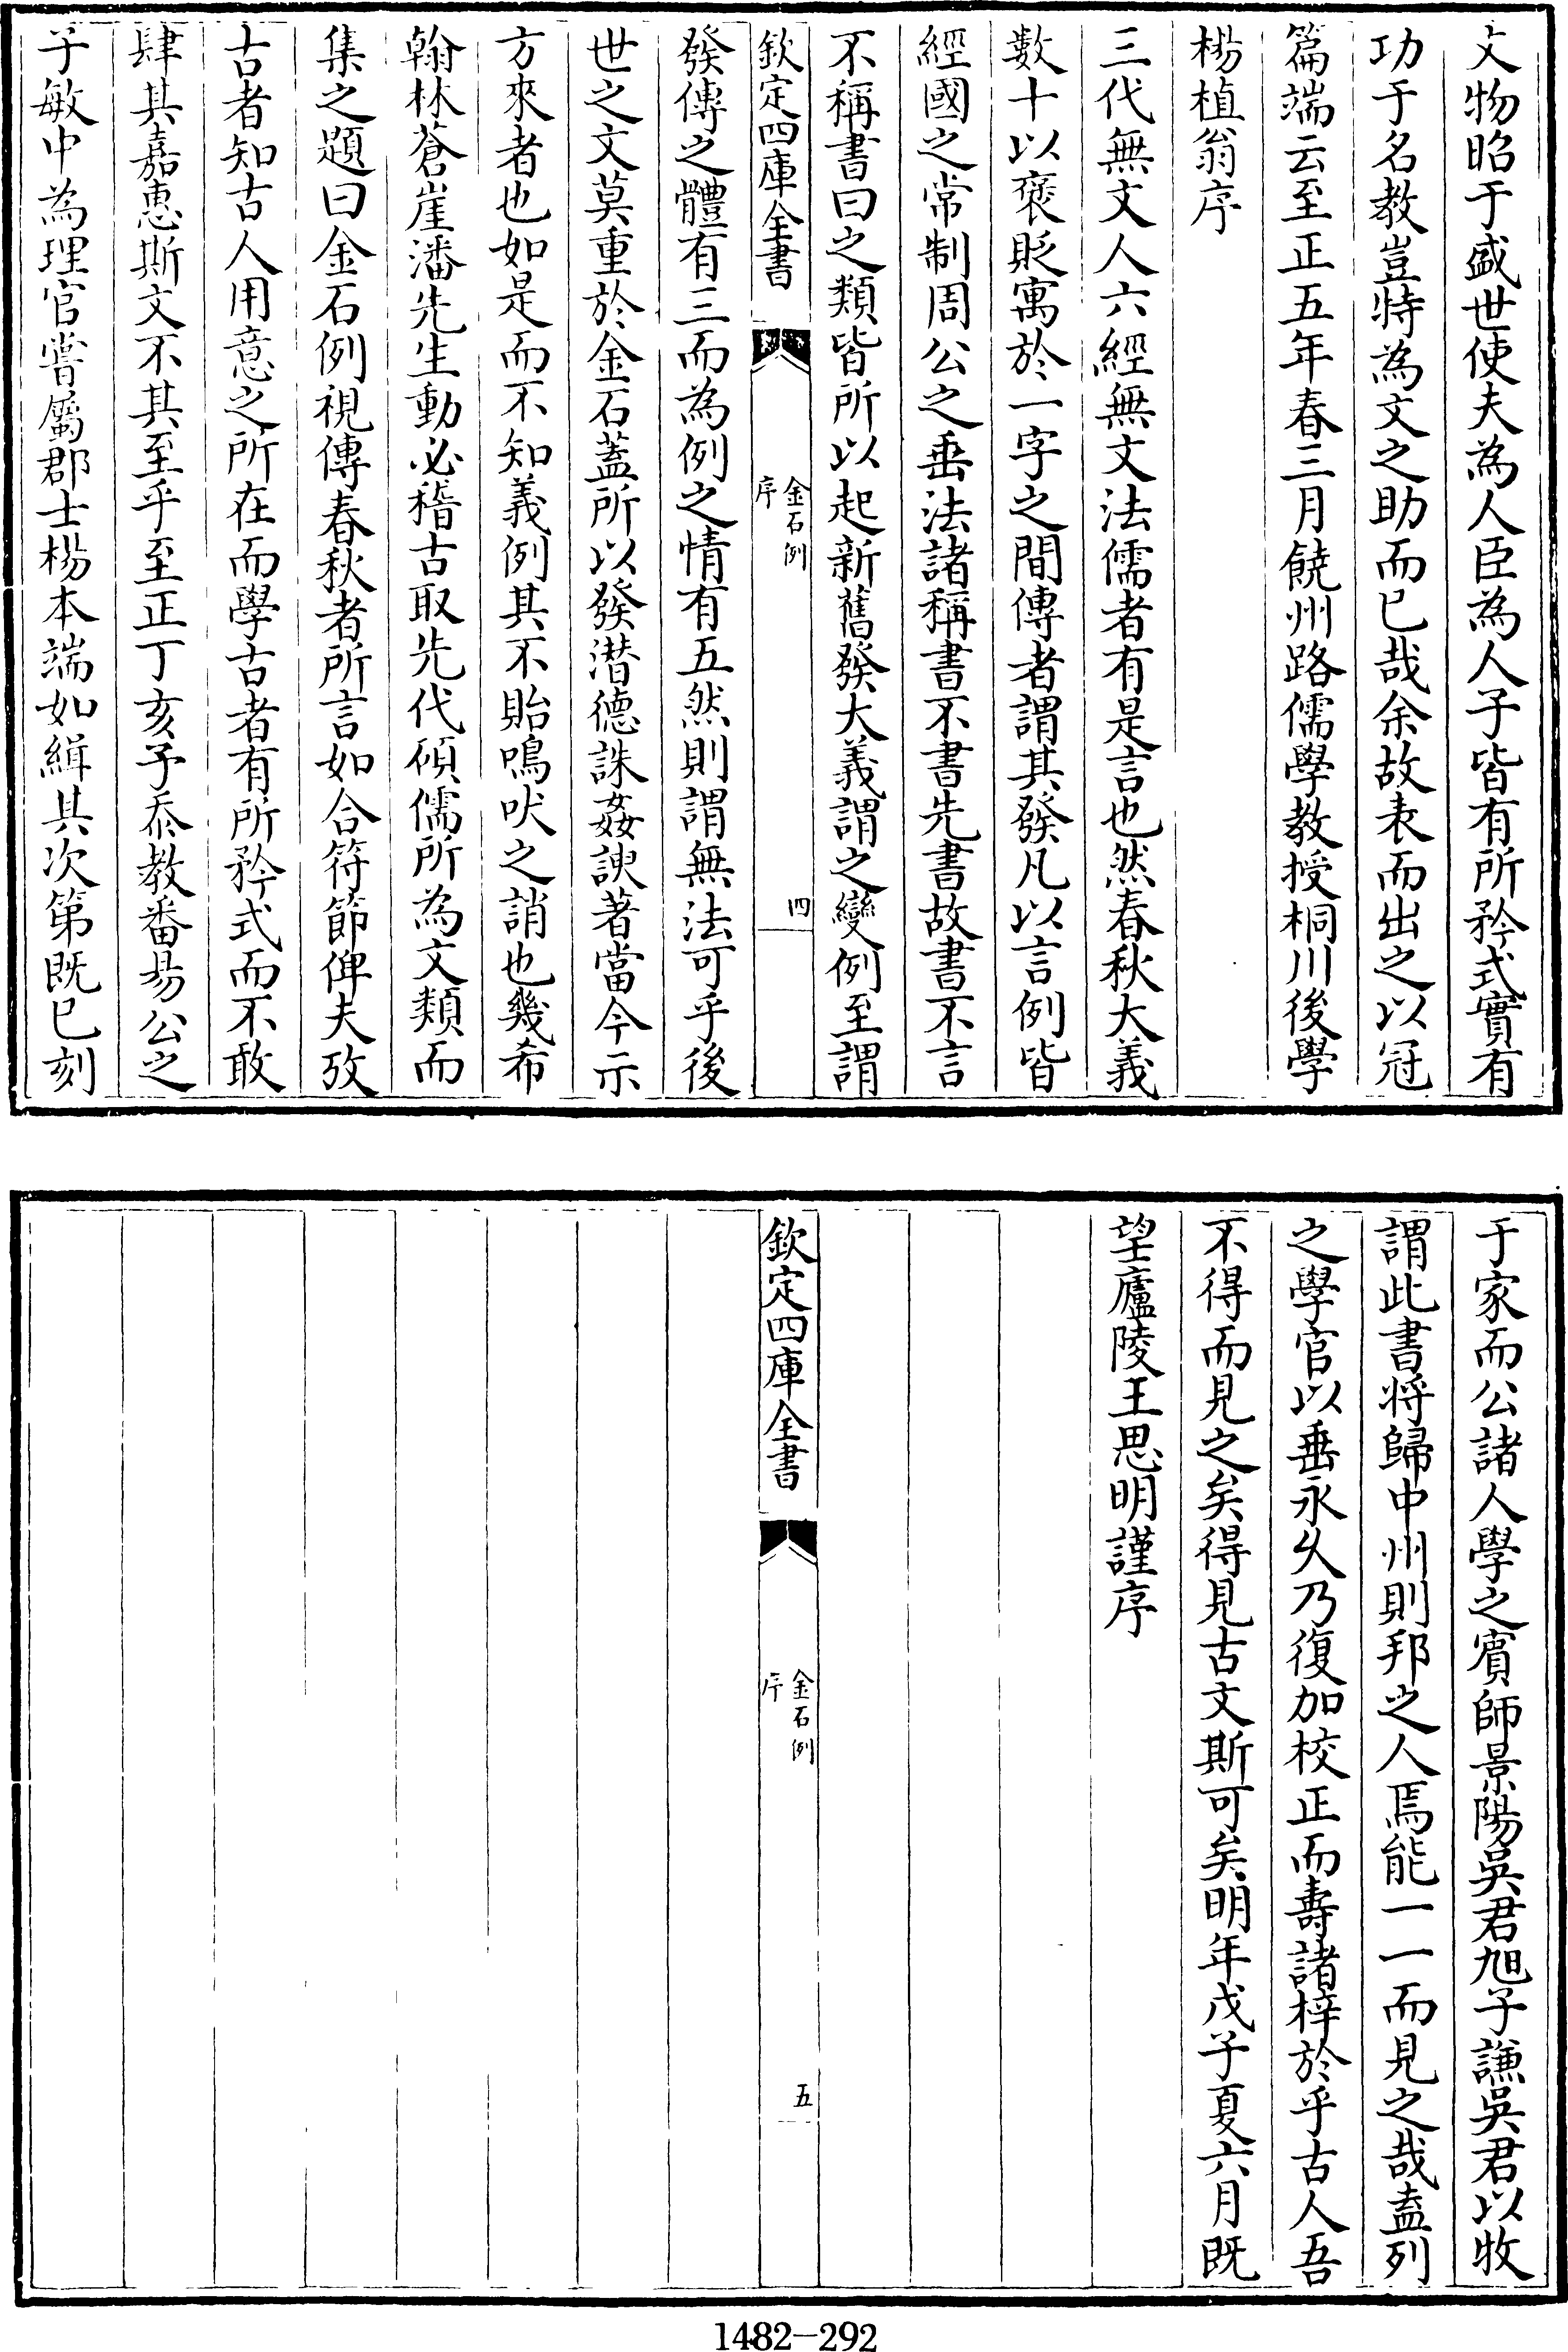 文物昭于盛世使夫為人臣為人子皆有所矜式實有
功于名教豈特為文之助而已哉余故表而出之以冠
篇端云至正五年春三月饒州路儒學教授桐川後學
楊植翁序
三代無文人六經無文法儒者有是言也然春秋大義
數十以褒貶寓於一字之間傳者謂其發凡以言例皆
經國之常制周公之垂法諸稱書不書先書故書不言
不稱書曰之類皆所以起新舊發大義謂之變例至謂
欽定四庫全書
金石例
序
四
發傳之體有三而為例之情有五然則謂無法可乎後
世之文莫重於金石蓋所以發潛德誅姦諛著當今示
方來者也如是而不知義例其不貽鳴吠之誚也幾希
翰林蒼崖潘先生動必稽古取先代碩儒所為文類而
集之題曰金石例視傳春秋者所言如合符節俾夫攷
古者知古人用意之所在而學古者有所矜式而不敢
肆其嘉惠斯文不其至乎至正丁亥予忝教番昜公之
子敏中為理官嘗屬郡士楊本端如緝其次第既已刻
于家而公諸人學之賓師景陽吳君旭子謙吳君以牧
謂此書將歸中州則邦之人焉能一一而見之哉盍列
之學官以垂永久乃復加校正而壽諸梓於乎古人吾
不得而見之矣得見古文斯可矣明年戊子夏六月既
望廬陵王思明謹序
欽定四庫全書
金石例
序
五
1482-292